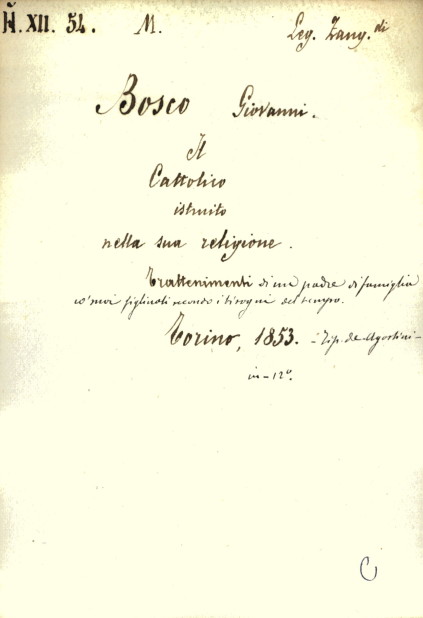 Ñ. XII. 54. M. Leg. Zang.di
Bosco Giovanni.
Il
Cattolico
istruito
nella sua religione.
Trattenimenti di un padre di famiglia
co' suoi figliuoli secondo i bisogni del tempo.
Torino, 1853. - Tip. De Agostini -
in-12°.
C